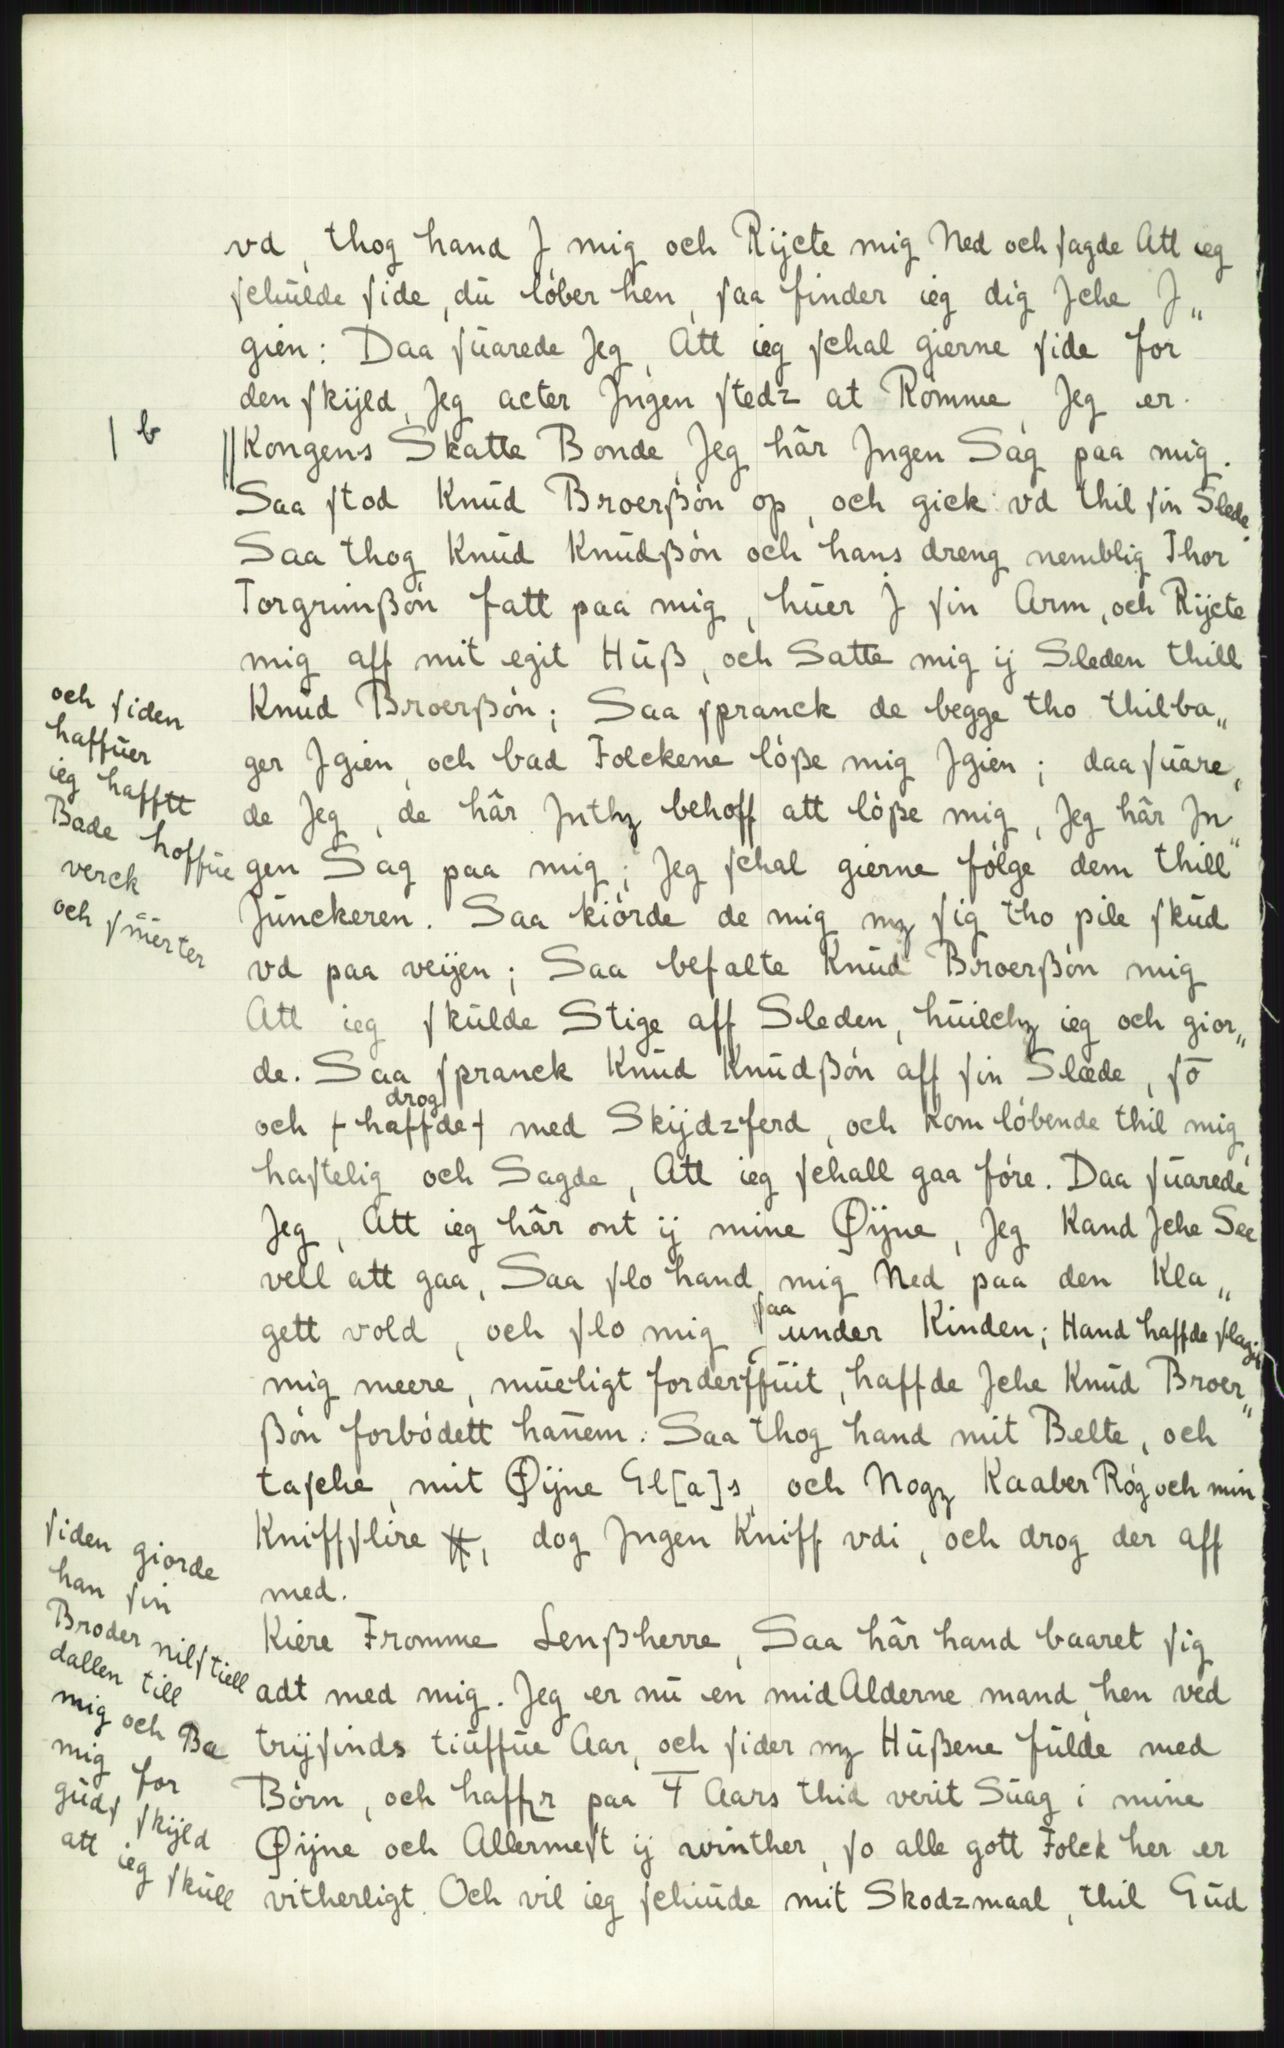 vd, thog hand J mig och Rijcte mig Ned och sagde Att ieg
schulde side, du løber hen, saa finder ieg dig Jche J„
gien: Daa suarede Jeg, Att ieg schal gierne side for
den skijld, Jeg acter Jngen stedz at Rømme, Jeg er
1 b
||Kongens Skatte Bonde, Jeg hår Jngen Sag paa mig.
Saa stod Knud Broerßøn op, och gick vd thil sin Slede.
Saa thog Knud Knudßøn och hans dreng nemblig Thor
Torgrimßøn fatt paa mig, huer J sin Arm, och Rijcte
mig aff mit egit Huß, och Satte mig ij Sleden thill
Knud Broerßøn; Saa spranck de begge tho thilba„
ger Jgien, och bad Folckene løße mig Jgien; daa suare„
de Jeg, de hår Jnthz behoff att løße mig, Jeg hår Jn„
gen Sag paa mig; Jeg schal gierne følge dem thill
Junckeren. Saa kiørde de mig mz sig tho pile skud
vd paa veijen; Saa befalte Knud Broerßøn mig
Att ieg skulde Stige aff Sleden, huilchz ieg och gior„
de. Saa spranck Knud Knudßøn aff sin Slæde, so
och + haffde + med Skijdzferd, och kom løbende thil mig
drog
hastelig och Sagde, Att ieg schall gaa føre. Daa suarede
Jeg, Att ieg hår ont ij mine Øijne, Jeg Kand Jche See
vell att gaa, Saa slo hand mig Ned paa den Kla„
gett vold, och slo mig saa under Kinden; Hand haffde slagit
mig meere, mueligt forderffuit, haffde Jche Knud Broer„
ßøn forbødett hanem. Saa thog hand mit Belte, och
tasche, mit Øijne Gl[a]s, och Nogz Kaaber Røg och min
Kniffslire, dog Jngen Kniff vdi, och drog der aff
med.
Kiere Fromme Lenßherre, Saa hår hand baaret sig
adt med mig. Jeg er nu en mid Alderne mand, hen ved
trijsinds tiuffue Aar, och sider mz Hußene fulde med
Børn, och haffr paa 4 Aars thid verit Suag i mine
Øijne och Allermest ij winther, so alle gott Folck her er
vitherligt. Och vil ieg schiude mit Skodzmaal, thil Gud
och siden
haffuer
ieg hafftt
Bade hoffue
verck
och suerter
siden giorde
han sin
Broder nils tiell
dallen till
mig och Ba
mig for
guds skijld
att ieg skull